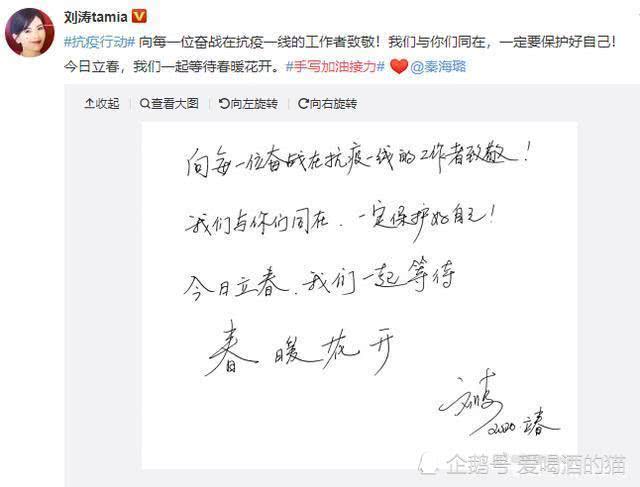 刘涛tamia
#抗疫行动# 向每一位奋战在抗疫一线的工作者致敬！我们与你们同在，一定要保护好自己！
今日立春，我们一起等待春暖花开。#手写加油接力# @秦海璐
收起 查看大图 向左旋转 向右旋转
向每一位奋战在抗疫一线的工作者致敬！
我们与你们同在．一定保护好自己！
今日立春．我们一起等待
春暖花开
刘涛
2020.立春
企鹅号 爱喝酒的猫